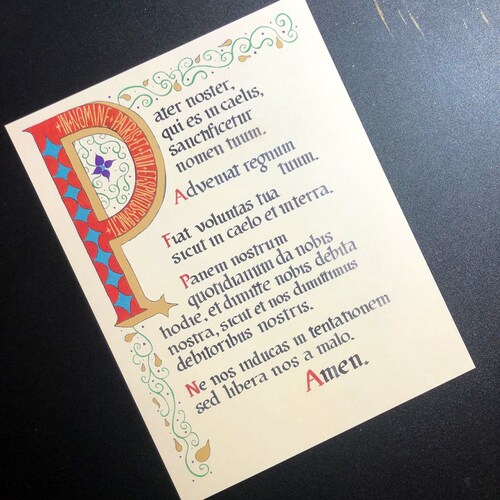 +IN+NOMINE+PATRIS+ET+FILII+ET+SPIRITUS+SANCTI+
Pater noster,
qui es in caelis,
sanctificetur
nomen tuum.
Adveniat regnum
tuum.
Fiat voluntas tua
sicut in caelo et in terra.
Panem nostrum
quotidianum da nobis
hodie, et dimitte nobis debita
nostra, sicut et nos dimittimus
debitoribus nostris.
Ne nos inducas in tentationem
sed libera nos a malo.
Amen.